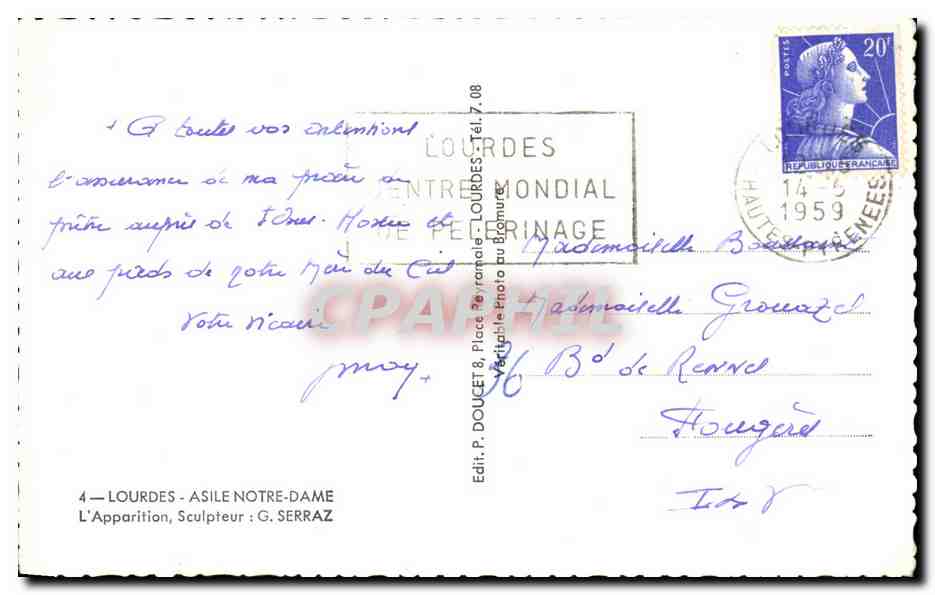 + A toutes vos intentions
l'assurance de ma prière de
prêtre auprès de J. Ones. Hostie et
aux pieds de notre Mère du Ciel
Votre vicaire
+
4 — LOURDES - ASILE NOTRE-DAME
L'Apparition, Sculpteur : G. SERRAZ
Edit. P. DOUCET 8, Place Peyramale - LOURDES - Tél. 7.08
Véritable Photo au Bromure
LOURDES
CENTRE MONDIAL
DE PELERINAGE
POSTES
20F
REPUBLIQUE FRANCAISE
LOURDES
14-5
1959
HAUTES PYRENEES
Mademoiselle
Mademoiselle Grouazel
36 Bd de Rennes
Fougères
I et V
CPAPHIL